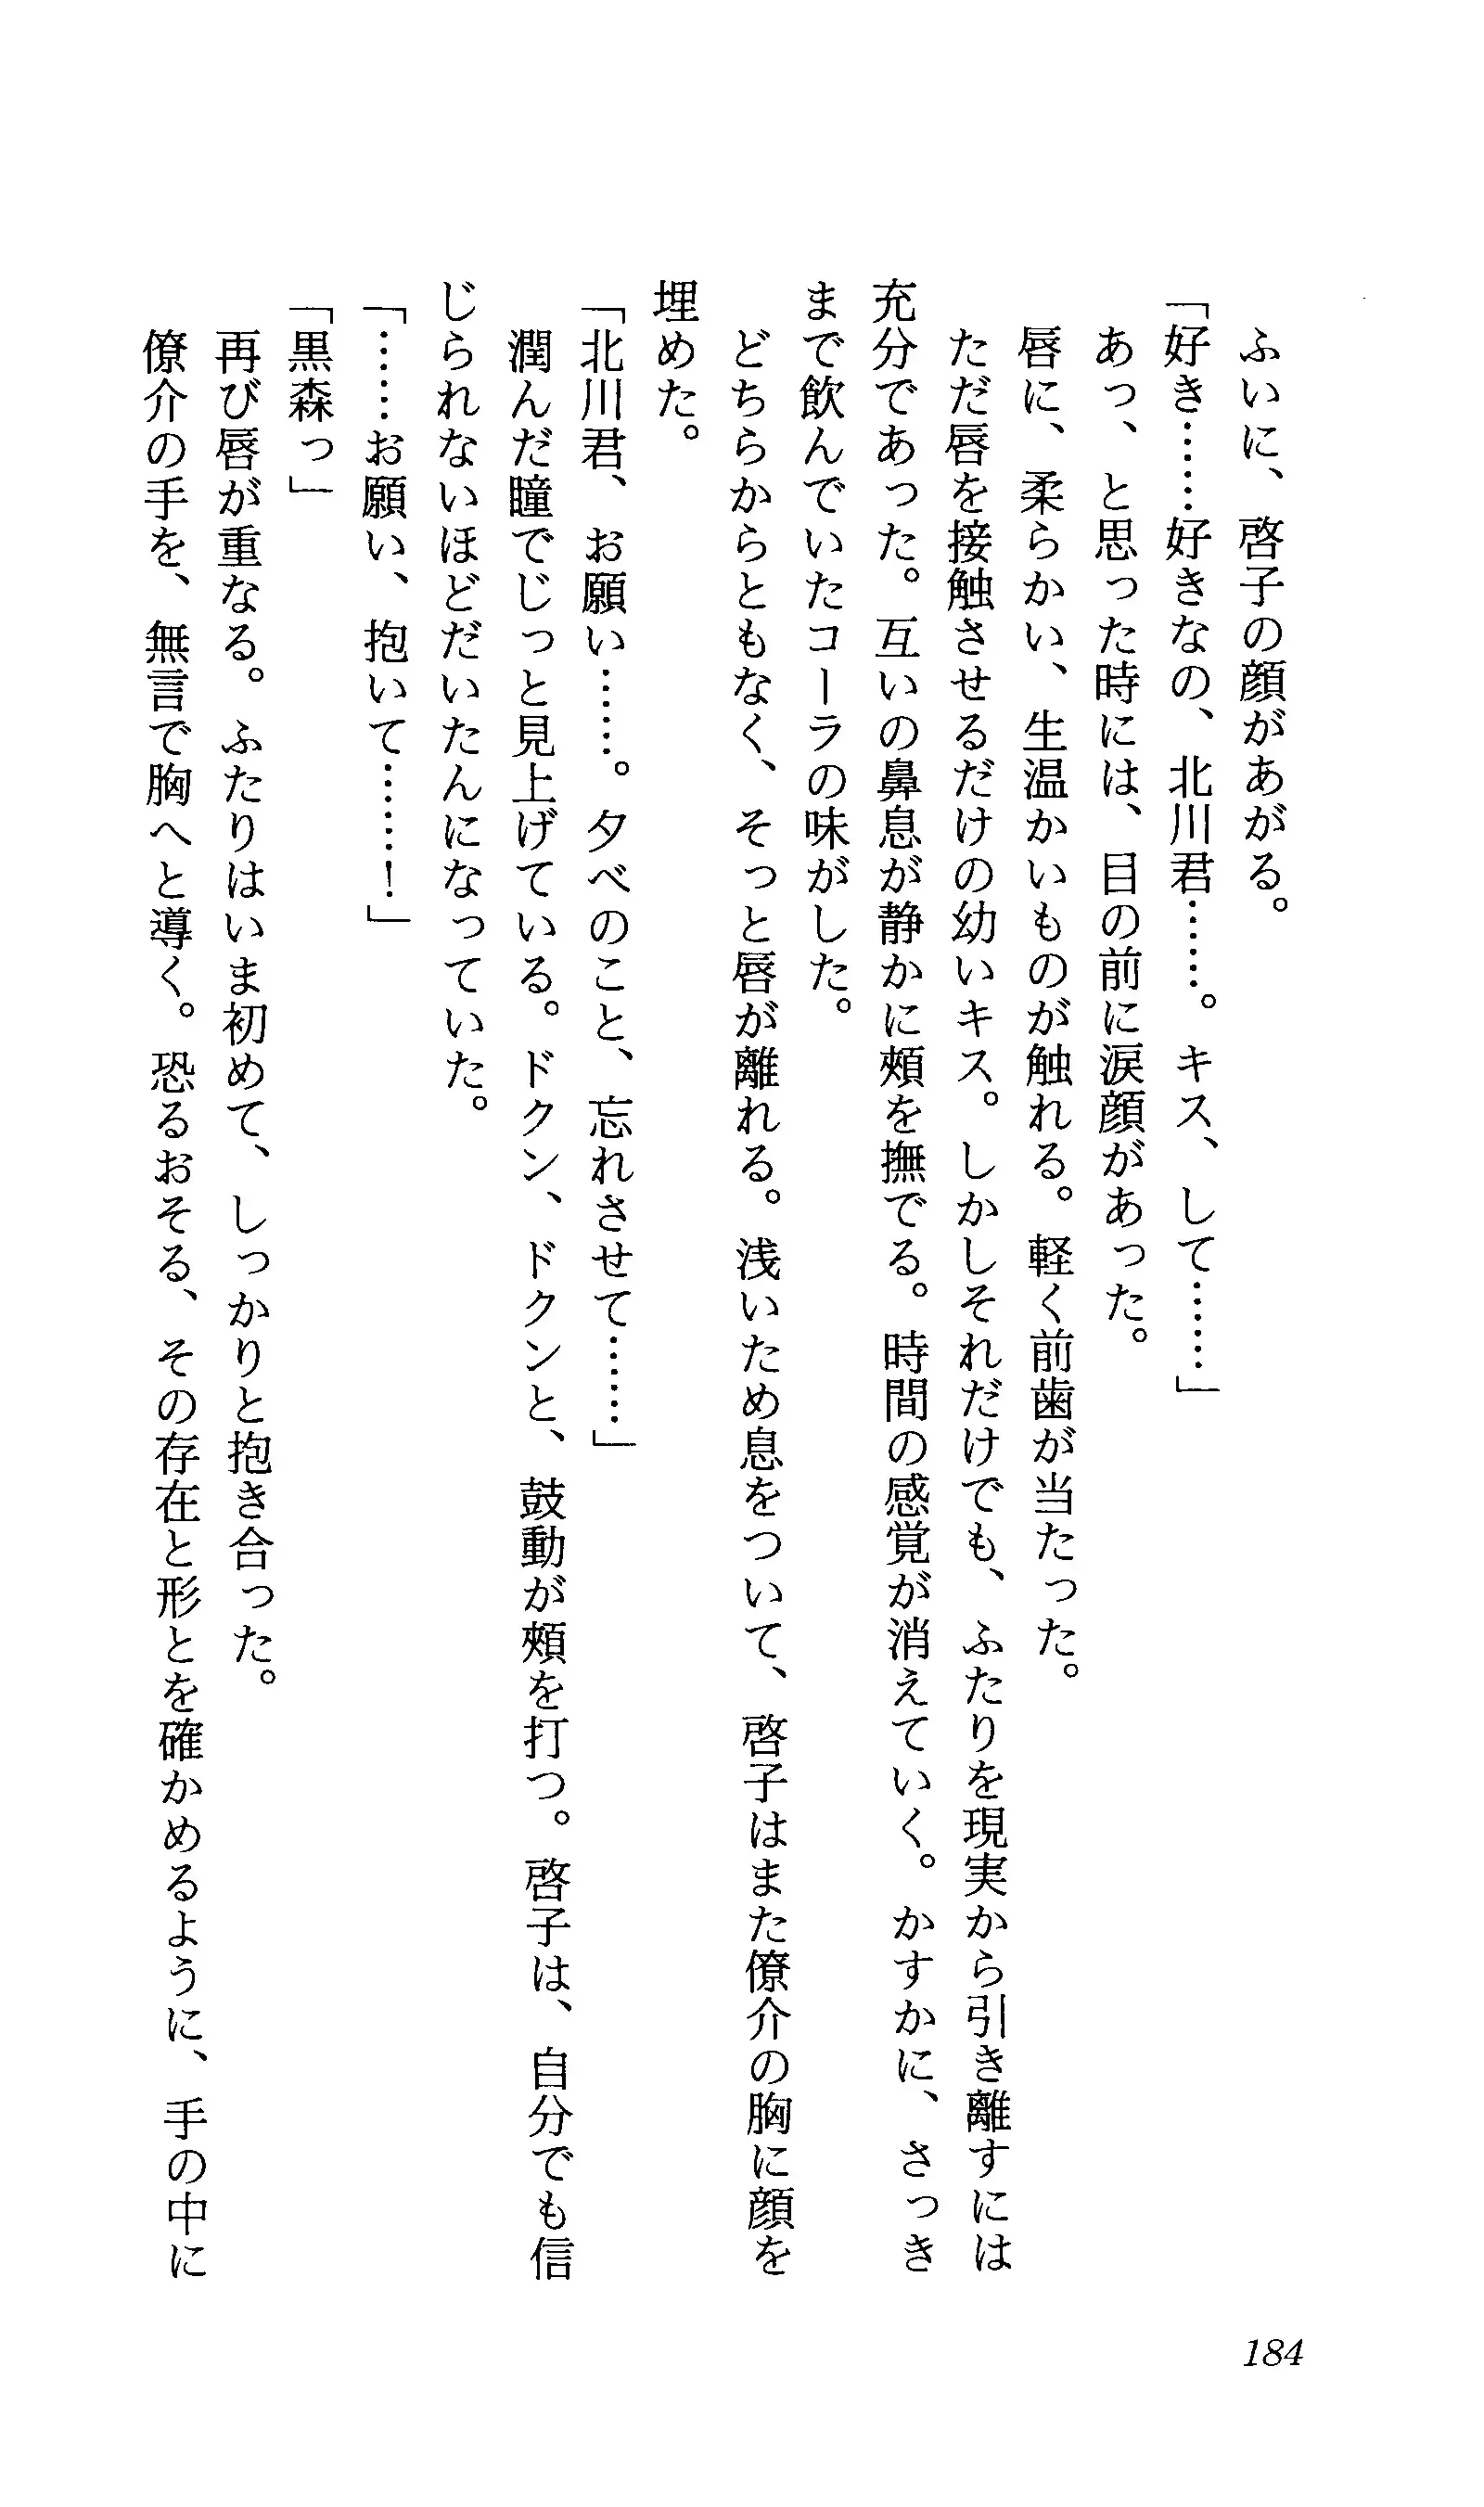 ふいに、啓子の顔があがる。
「好き……好きなの、北川君……。キス、して……」
あっ、と思った時には、目の前に涙顔があった。
唇に、柔らかい、生温かいものが触れる。軽く前歯が当たった。
ただ唇を接触させるだけの幼いキス。しかしそれだけでも、ふたりを現実から引き離すには
充分であった。互いの鼻息が静かに頰を撫でる。時間の感覚が消えていく。かすかに、さっき
まで飲んでいたコーラの味がした。
どちらからともなく、そっと唇が離れる。浅いため息をついて、啓子はまた僚介の胸に顔を
埋めた。
「北川君、お願い……。夕べのこと、忘れさせて……」
潤んだ瞳でじっと見上げている。ドクン、ドクンと、鼓動が頰を打つ。啓子は、自分でも信
じられないほどだいたんになっていた。
「……お願い、抱いて……！」
「黒森っ」
再び唇が重なる。ふたりはいま初めて、しっかりと抱き合った。
僚介の手を、無言で胸へと導く。恐るおそる、その存在と形とを確かめるように、手の中に
184